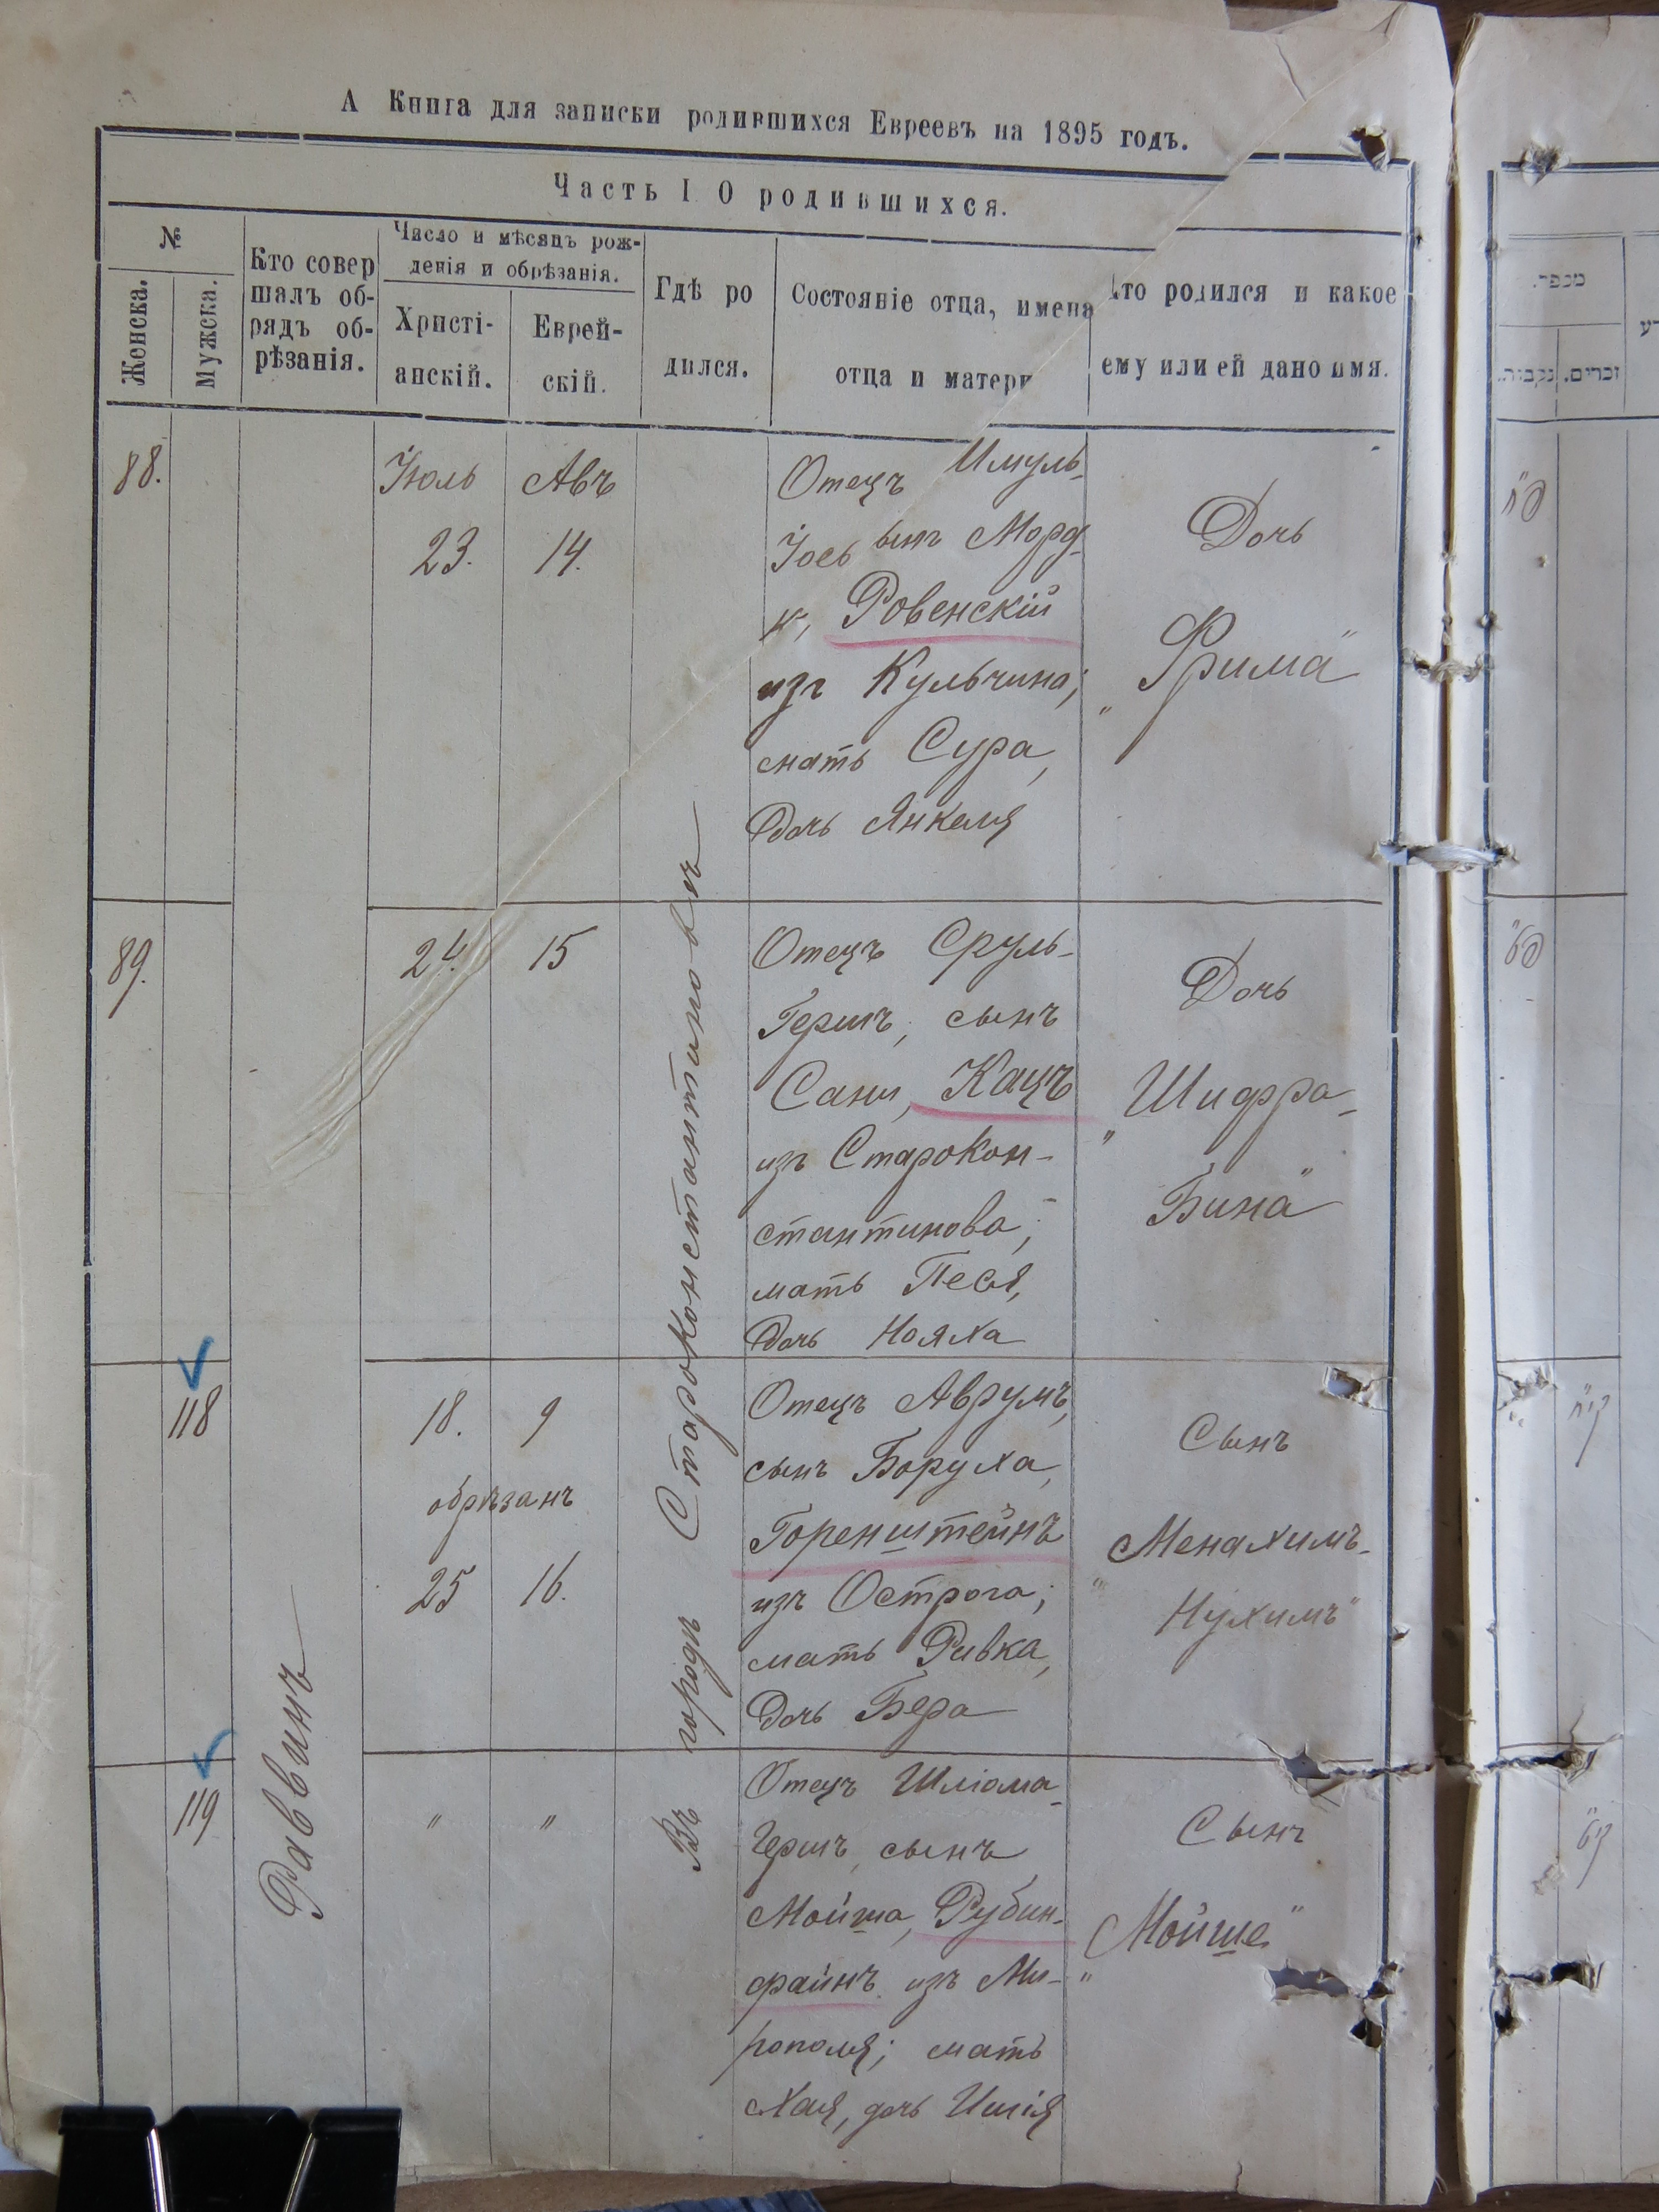 А Книга для записки родившихся Евреевъ на 1895 годъ.
Часть I О родившихся.
№
Женска.
Мужска.
Кто совер
шалъ об-
рядъ об-
рѣзанія.
Число и мѣсяцъ рож-
денія и обрѣзанія.
Христі-
анскій.
Еврей-
скій.
Гдѣ ро
дился.
Состояніе отца, имена
отца и матери
Кто родился и какое
ему или ей дано имя.
88.
Іюль
23.
Авъ
14.
Отецъ
Іось
Ровенскій
изъ Кульчина;
мать Сура,
дочь Янкеля
Дочь
„Фрима"
89.
24.
15
Отецъ Сруль-
Гершъ, сынъ
Сани, Кацъ
изъ Старокон-
стантинова;
мать Песя,
дочь Нояха
Дочь
„Шифра-
Бина"
118
18.
9
обрѣзанъ
25
16.
Отецъ Аврумъ,
сынъ Боруха,
Горенштейнъ
изъ Острога;
мать Ривка,
дочь Бера
Сынъ
„Менахимъ-
Нухимъ"
119
"
"
Отецъ Шліома-
Гершъ, сынъ
Мойша, Рубин-
файнъ изъ Ми-
рополя; мать
Хая, дочь
Сынъ
„Мойше"
Раввинъ
Въ городѣ Староконстантиновѣ
מספר.
זכרים.
נקבות.
פ"ח
פ"ט
קי"ח
קי"ט